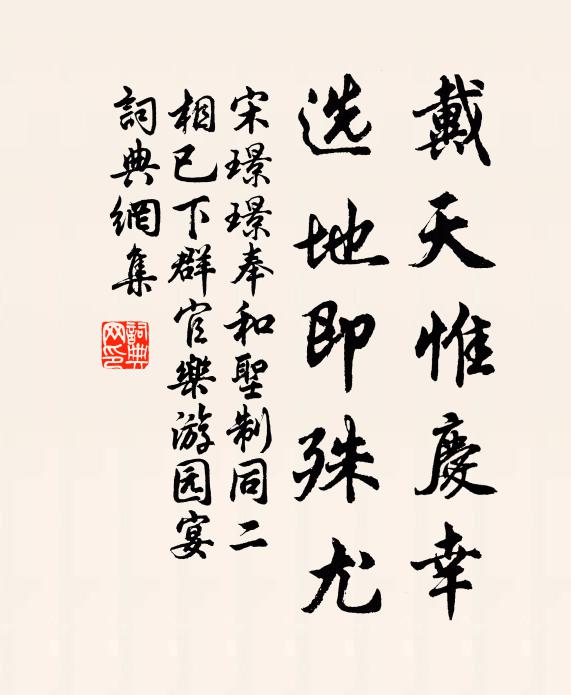 戴天惟慶幸
选地即殊尤
宋璟璟奉和聖制同二
相已下群官樂游园宴
詞典網集
詞典網印